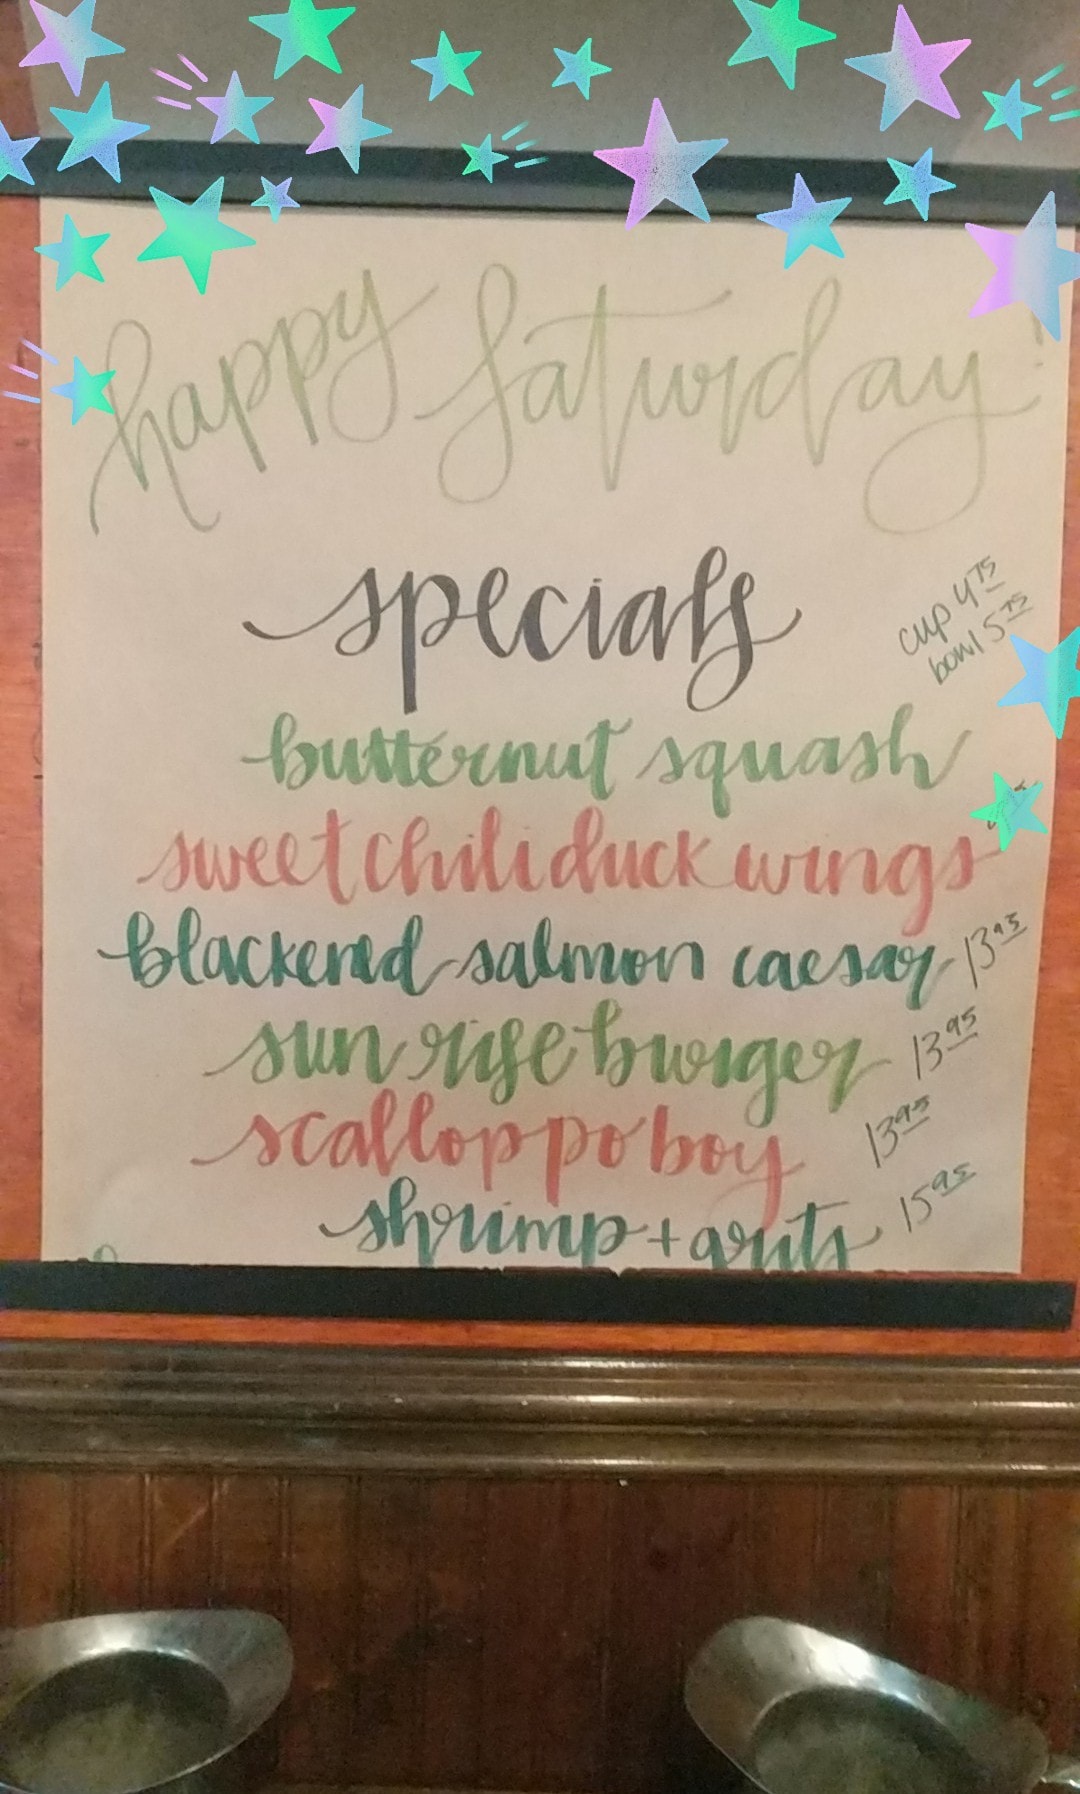 happy Saturday!
specials
cup 4.75
bowl 5.75
butternut squash
sweet chili duck wings
blackened salmon caesar 13.95
sunrise burger 13.95
scallop po boy 13.95
shrimp + grits 15.95